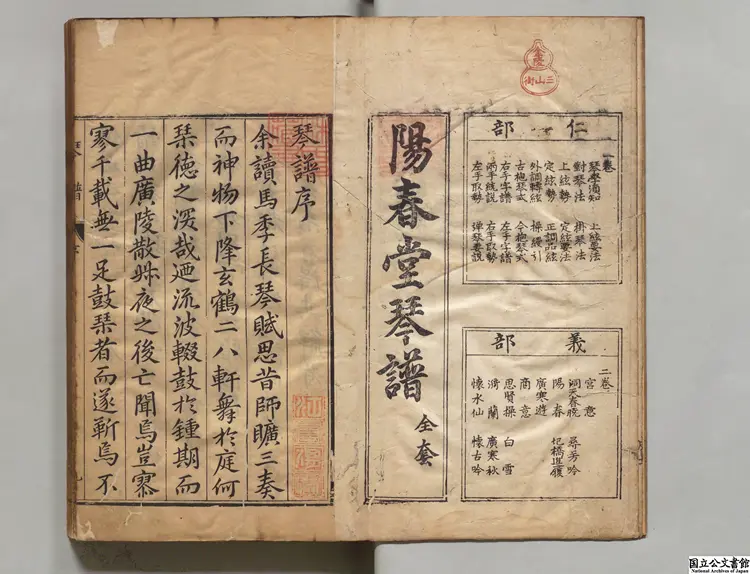 金陵
三山街
仁部
一卷
琴學須知 上絃要法
對琴法 排琴法
上絃勢 定絃要法
定絃勢 正調品絃
外調轉絃 操縵引
古抱琴式 今抱琴式
右手字譜 左手字譜
兩手統説 右手取勢
左手取勢 弹琴要説
義部
二卷
宮意
洞天春曉 尋芳吟
陽春 圯橋進履
廣寒遊
商意
思賢操 白雪
漪蘭 廣寒秋
懷水仙 懷古吟
陽春堂琴譜 全套
琴譜序
余讀馬季長琴賦思昔師曠三奏
而神物下降玄鶴二八軒舞於庭何
琴德之深哉廼流波輟鼓於鍾期而
一曲廣陵散叔夜之後亡聞焉豈寥
寥千載無一足鼓琴者而遂靳焉不
琴譜
国立公文書館
National Archives of Japan